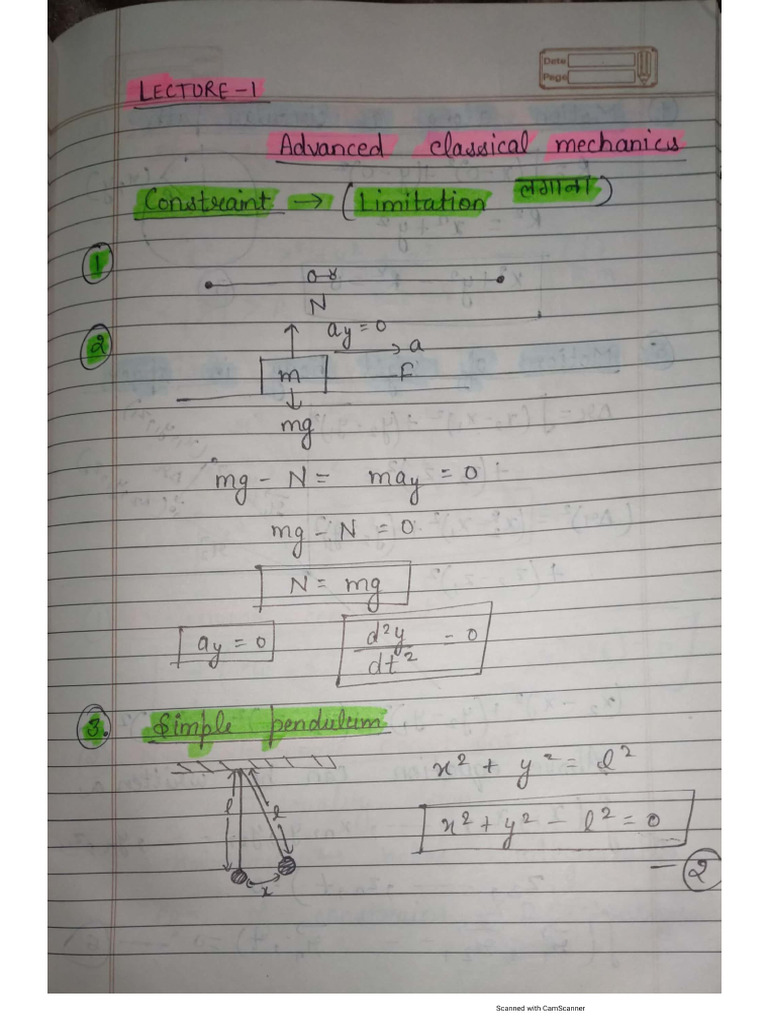 Date
Page
LECTURE-1
Advanced classical mechanics
Constraint → (Limitation लगाना)
1
N
2
ay = 0
a
m
F
mg
mg - N = may = 0
mg - N = 0
N = mg
ay = 0 d²y/dt² = 0
3. Simple pendulum
x² + y² = l²
l l
x² + y² - l² = 0
x
- 2
Scanned with CamScanner